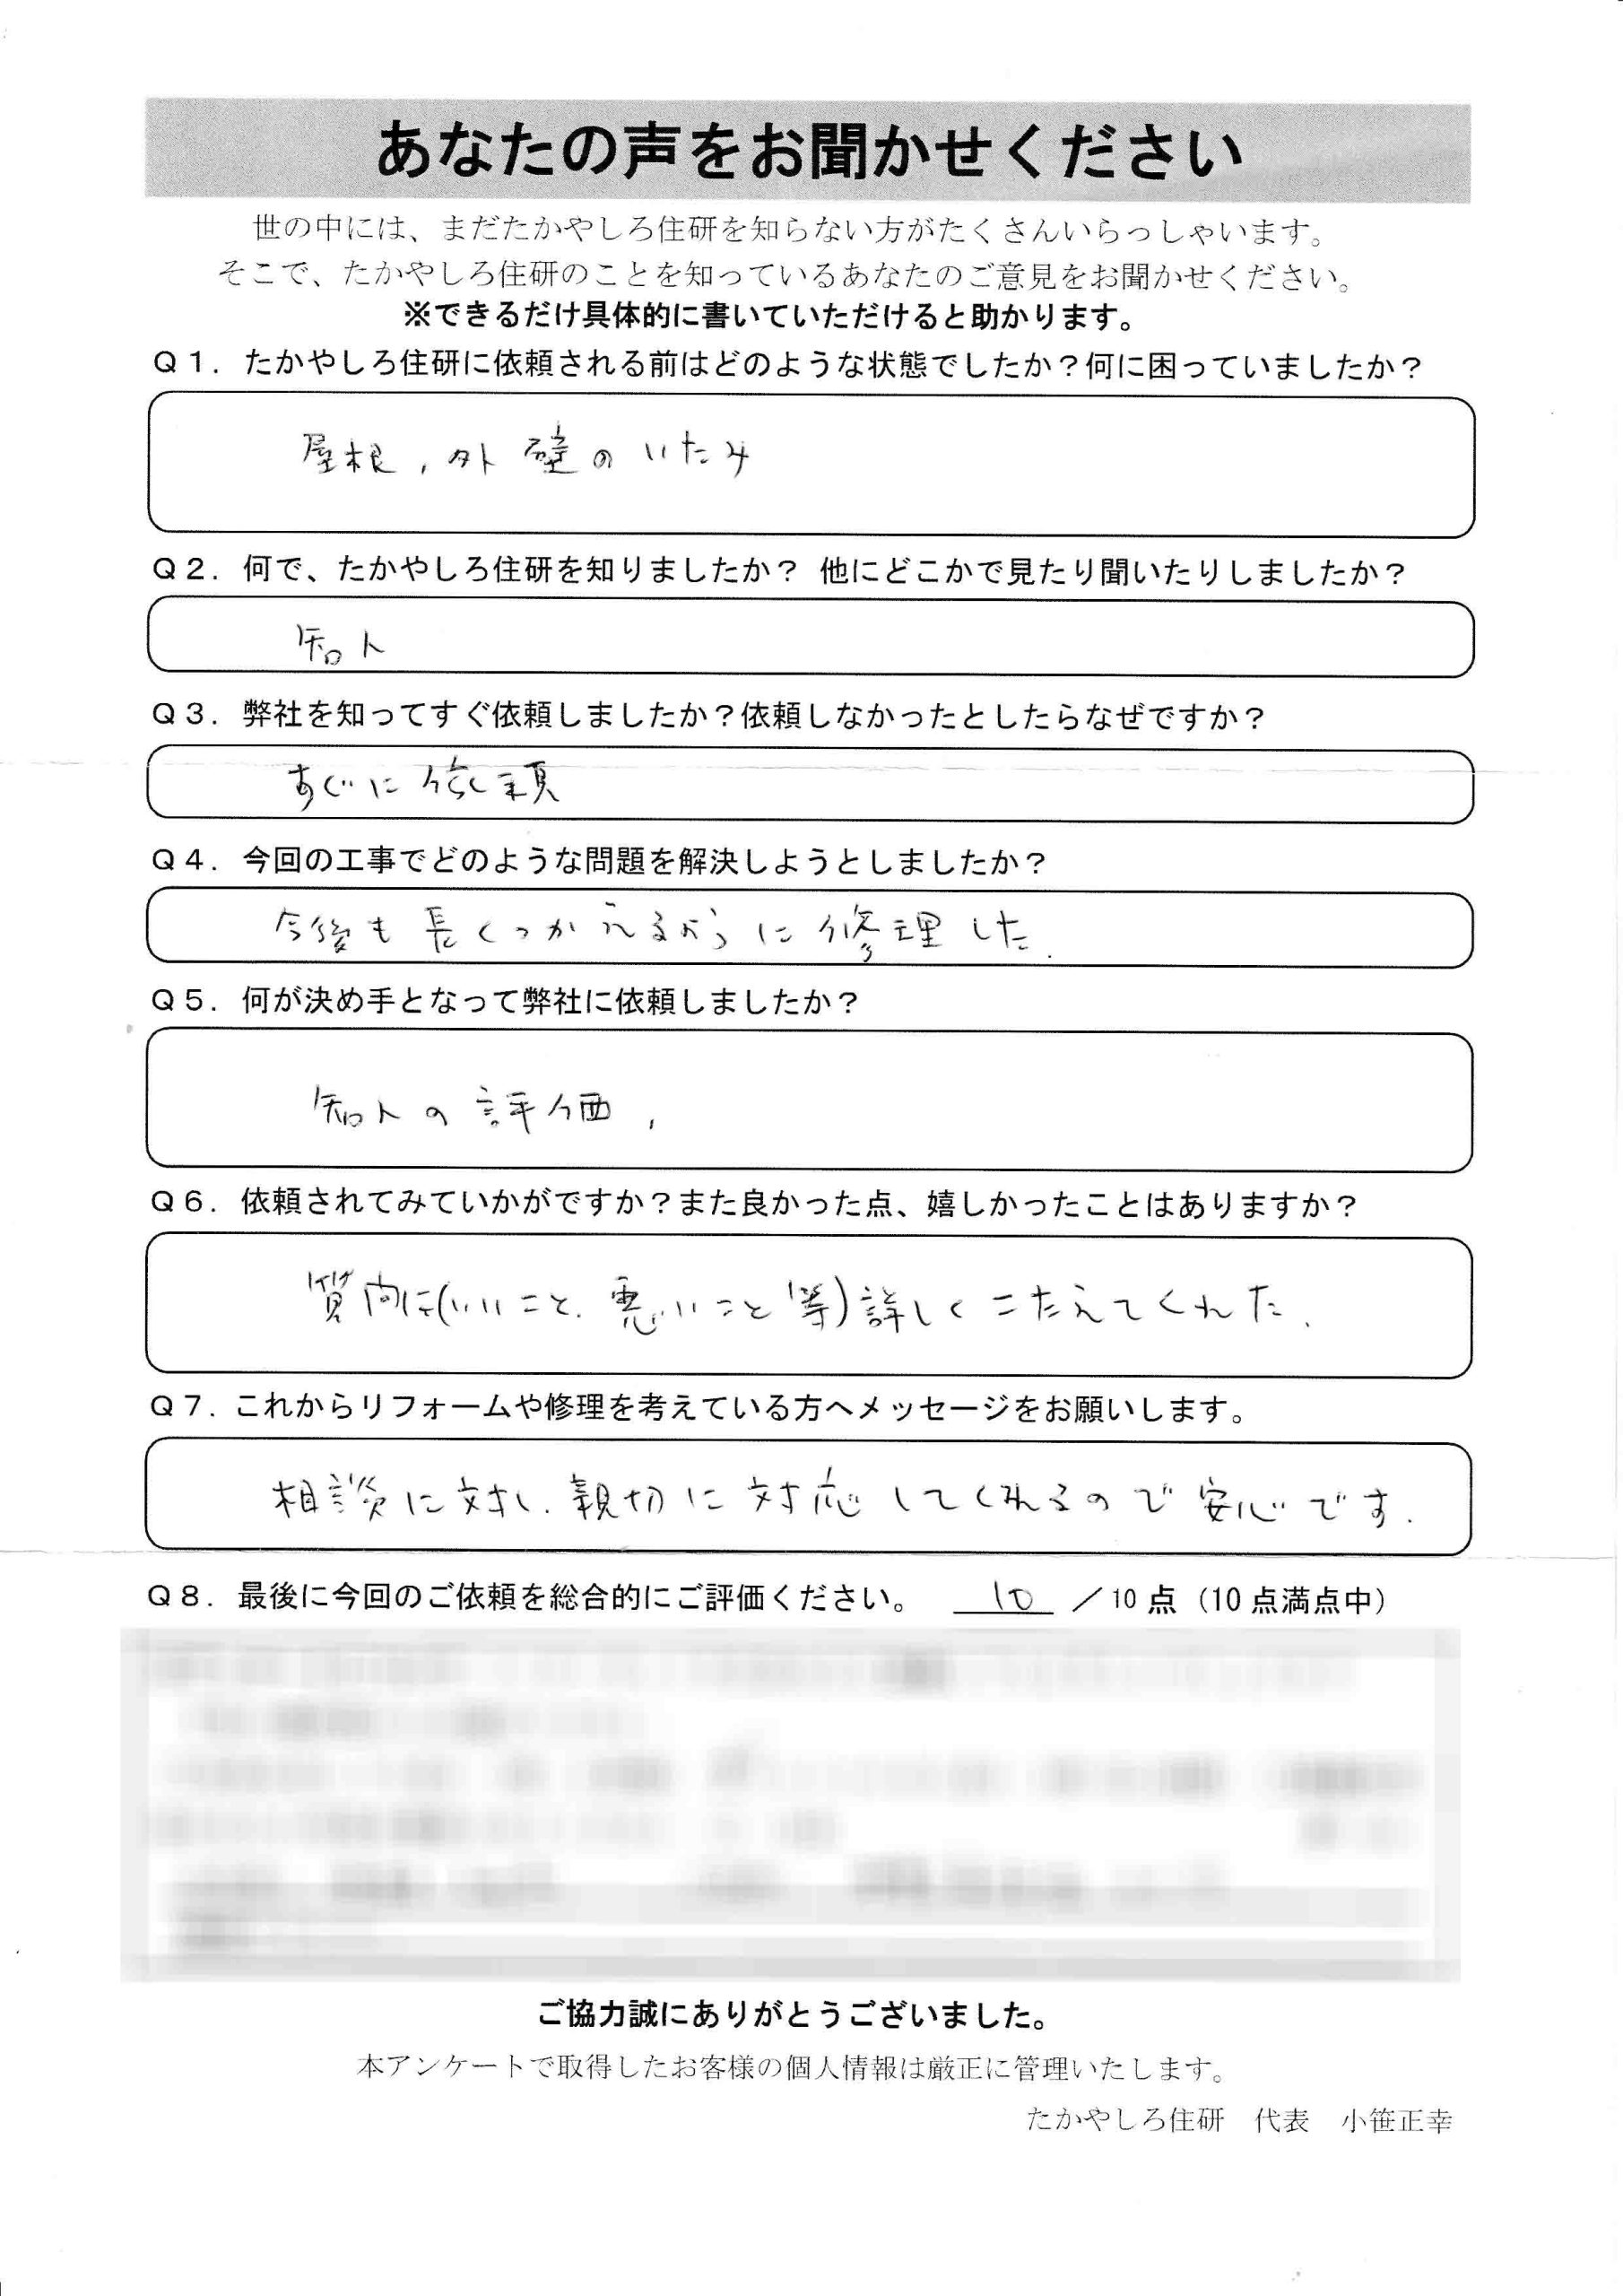 あなたの声をお聞かせください
世の中には、まだたかやしろ住研を知らない方がたくさんいらっしゃいます。
そこで、たかやしろ住研のことを知っているあなたのご意見をお聞かせください。
※できるだけ具体的に書いていただけると助かります。
Q1. たかやしろ住研に依頼される前はどのような状態でしたか？何に困っていましたか？
屋根，外壁のいたみ
Q2. 何で、たかやしろ住研を知りましたか？ 他にどこかで見たり聞いたりしましたか？
知人
Q3. 弊社を知ってすぐ依頼しましたか？依頼しなかったとしたらなぜですか？
すぐに依頼
Q4. 今回の工事でどのような問題を解決しようとしましたか？
今後も長くつかえるように修理した.
Q5. 何が決め手となって弊社に依頼しましたか？
知人の評価，
Q6. 依頼されてみていかがですか？また良かった点、嬉しかったことはありますか？
質問に(いいこと.悪いこと等)詳しくこたえてくれた.
Q7. これからリフォームや修理を考えている方へメッセージをお願いします。
相談に対し.親切に対応してくれるので安心です.
Q8. 最後に今回のご依頼を総合的にご評価ください。 10 ／10点（10点満点中）
ご協力誠にありがとうございました。
本アンケートで取得したお客様の個人情報は厳正に管理いたします。
たかやしろ住研 代表 小笹正幸